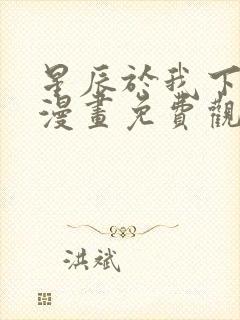 星辰於我下
漫畫免費觀
洪斌